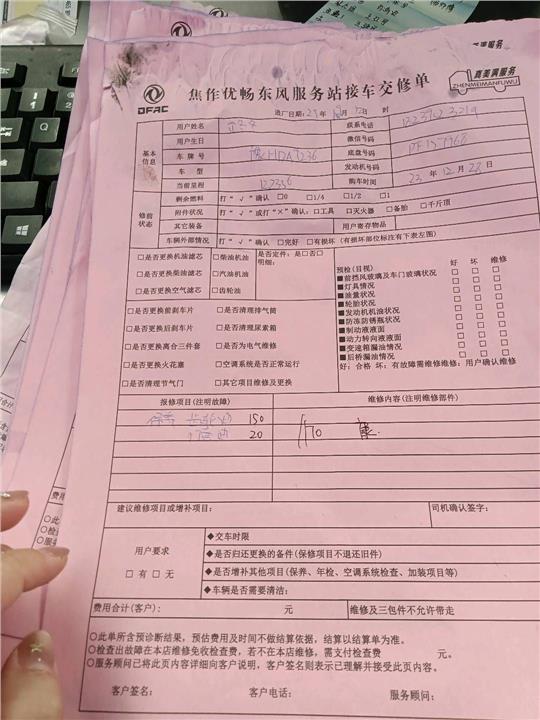 真美满服务
DFAC
焦作优畅东风服务站接车交修单
真美满服务
ZHENMEIMANFUWU
进厂日期: 年 月 日 时
基本信息
用户姓名
联系电话
用户生日
微信号码
车牌号
底盘号码
车型
发动机号码
当前里程
购车时间 23年12月28日
修前状态
剩余燃料 打“√”确认 □0 □1/4 □1/2 □1
附件状况 打“√”或打“×”确认:□工具 □灭火器 □备胎 □千斤顶
其它装备
用户寄存物品
车辆外部情况 打“√”确认 □完好 □有损坏(有损坏部位标注有下表左图)
□是否更换机油滤芯 □柴油机油 是否定件:是□否□
□是否更换柴油滤芯 □汽油机油 明细:
□是否更换空气滤芯 □齿轮油
□是否更换前刹车片 □是否清理排气筒
□是否更换后刹车片 □是否清理尿素箱
□是否更换离合三件套 □是否为电气维修
□是否更换火花塞 □空调系统是否正常运行
□是否清理节气门 □其它项目维修及更换
预检(目视) 好 坏 维修
■前挡风玻璃及车门玻璃状况 □ □ □
■灯具情况 □ □ □
■油量状况 □ □ □
■轮胎状况 □ □ □
■发动机机油状况 □ □ □
■防冻防锈瓶状况 □ □ □
■制动液液面 □ □ □
■动力转向液面 □ □ □
■变速箱漏油情况 □ □ □
■后桥漏油情况 □ □ □
好:合格 坏:有故障需维修维修:用户确认维修
报修项目(注明故障) 维修内容(注明维修部件)
150
20 170
建议维修项目或增补项目:
司机确认签字:
用户要求
□有 □无
◆交车时限
◆是否归还更换的备件(保修项目不退还旧件)
◆是否增补其他项目(保养、年检、空调系统检查、加装项目等)
◆车辆是否需要清洁:
费用合计(客户): 元
维修及三包件不允许带走
○此单所含预诊断结果,预估费用及时间不做结算依据,结算以结算单为准。
○检查出故障在本店维修免收检查费,若不在本店维修,需支付检查费 元。
○服务顾问已将此页内容详细向客户说明,客户签名则表示已理解并接受此页内容。
客户签名: 客户电话: 服务顾问: